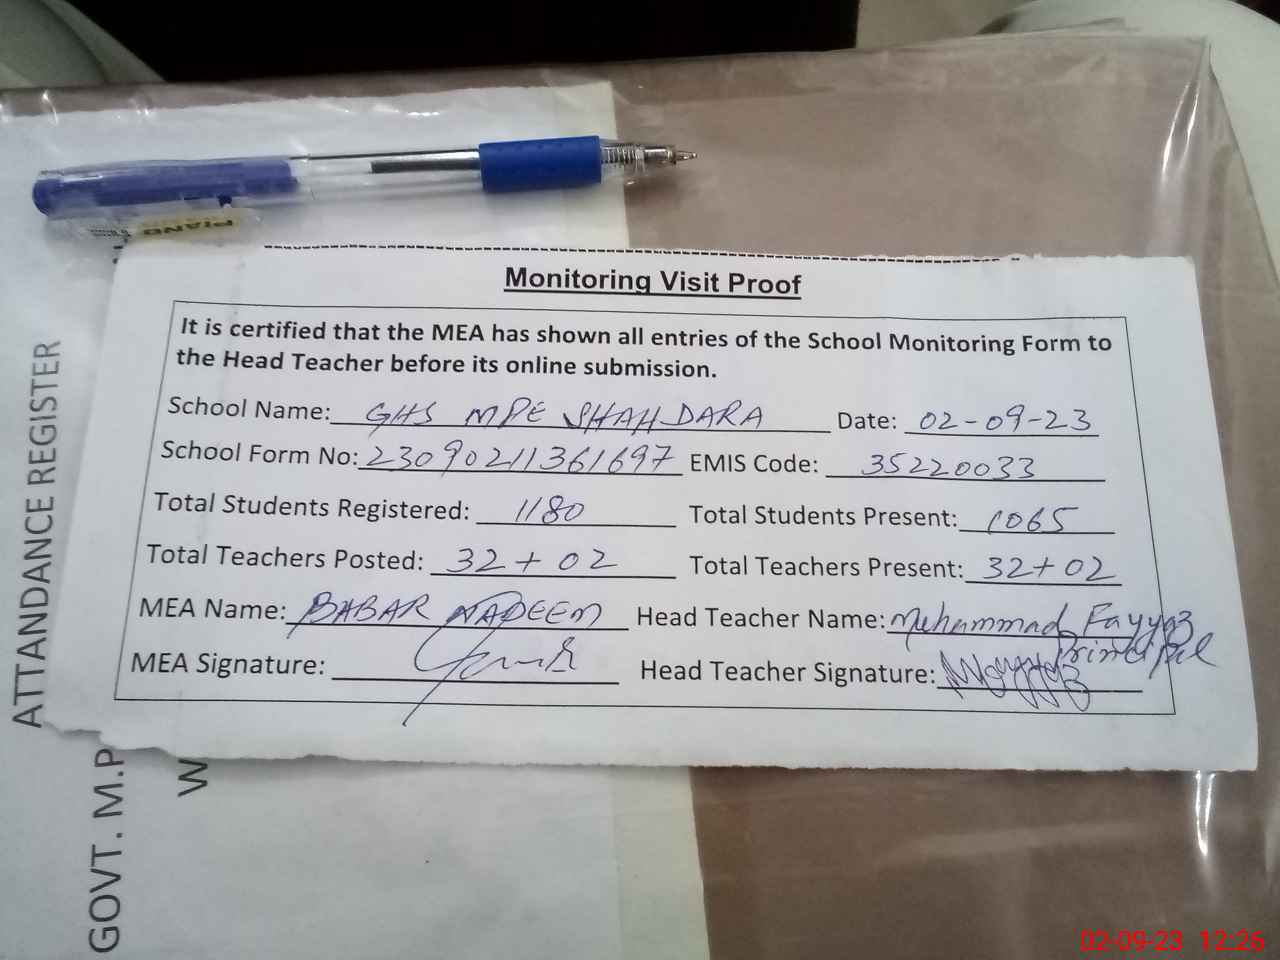 PIANO
Monitoring Visit Proof
It is certified that the MEA has shown all entries of the School Monitoring Form to
the Head Teacher before its online submission.
School Name: GHS MPE SHAHDARA Date: 02-09-23
School Form No: 23090211361697 EMIS Code: 35220033
Total Students Registered: 1180 Total Students Present: 1065
Total Teachers Posted: 32 + 02 Total Teachers Present: 32+02
MEA Name: BABAR NADEEM Head Teacher Name: Muhammad Fayyaz
Principal
MEA Signature: Head Teacher Signature:
ATTANDANCE REGISTER
GOVT. M.P
W
02-09-23 12:26